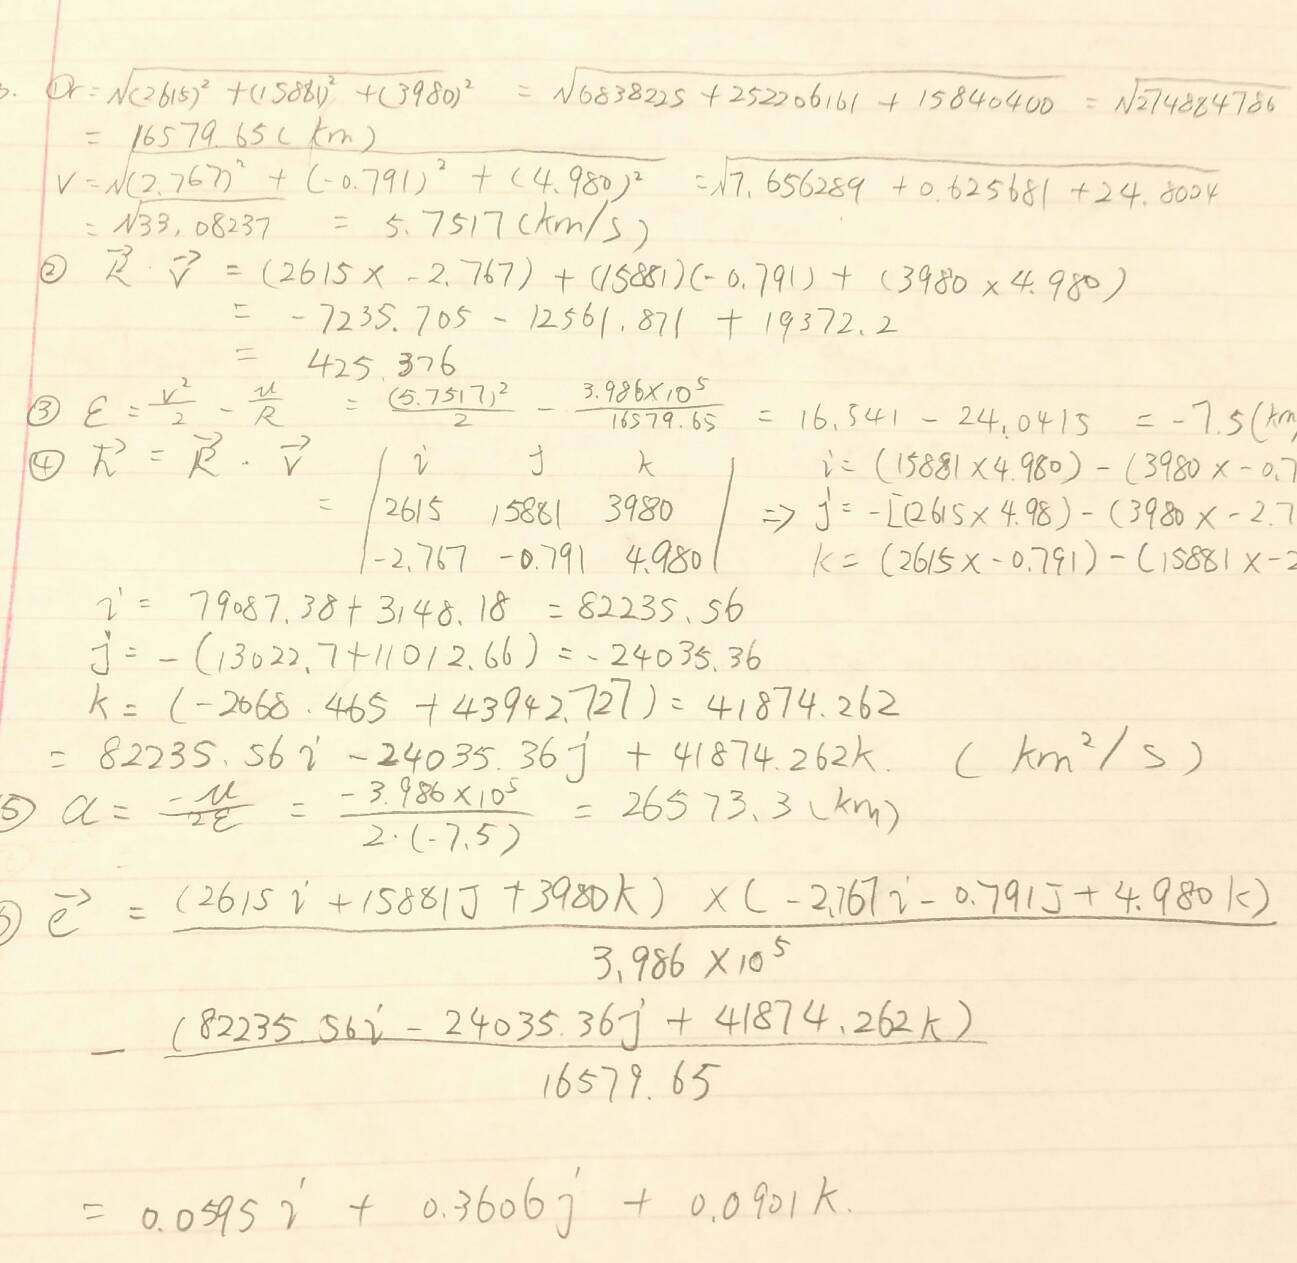 ①r = √(2615)² + (15881)² + (3980)² = √6838225 + 252206161 + 15840400 = √274884786
= 16579.65 (km)
V = √(2.767)² + (-0.791)² + (4.980)² = √7.656289 + 0.625681 + 24.8004
= √33.08237 = 5.7517 (km/s)
② R⃗ · V⃗ = (2615 x -2.767) + (15881)(-0.791) + (3980 x 4.980)
= -7235.705 - 12561.871 + 19372.2
= 425.376
③ ε = v²/2 - μ/R = (5.7517)²/2 - 3.986×10⁵/16579.65 = 16.541 - 24.0415 = -7.5 (km
④ h⃗ = R⃗ · V⃗ | i j k | i = (15881 × 4.980) - (3980 x -0.7
= | 2615 15881 3980 | => j = -[(2615 x 4.98) - (3980 x -2.7
| -2.767 -0.791 4.980 | k = (2615 x -0.791) - (15881 x -2
i = 79087.38 + 3148.18 = 82235.56
j = -(13022.7 + 11012.66) = -24035.36
k = (-2068.465 + 43942.727) = 41874.262
= 82235.56i - 24035.36j + 41874.262k. (km²/s)
⑤ a = -μ/2ε = -3.986×10⁵/2·(-7.5) = 26573.3 (km)
e⃗ = (2615i + 15881j + 3980k) × (-2.767i - 0.791j + 4.980k)
3.986 × 10⁵
- (82235.56i - 24035.36j + 41874.262k)
16579.65
= 0.0595i + 0.3606j + 0.0901k.